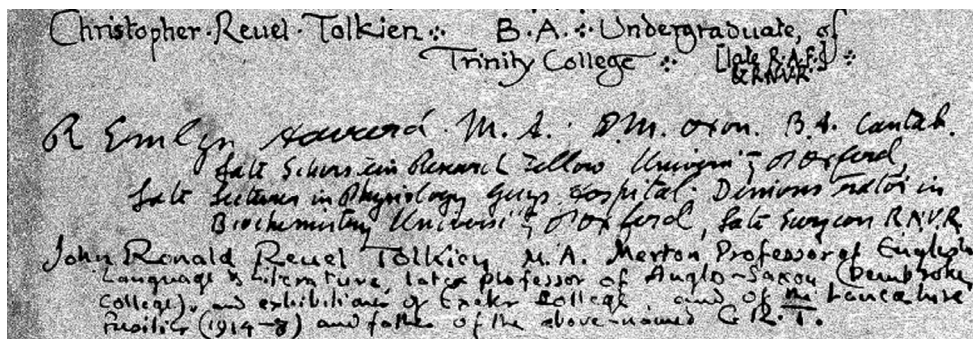 Christopher · Reuel · Tolkien ⁘ B.A. ⁘ Undergraduate, of
Trinity College ⁘ [late R.A.F.] ⁘
& R.N.V.R.
R Emlyn Havard. M.A. D.M. Oxon. B.A. Cantab.
Late Research Fellow University of Oxford,
Late Lecturer in Physiology Guys Hospital. Demonstrator in
Biochemistry University of Oxford, Late Surgeon R.N.V.R.
John Ronald Reuel Tolkien, M.A. Merton Professor of English
Language & Literature, late professor of Anglo-Saxon (Pembroke
College), and exhibitioner of Exeter College, and of the Lancashire
Fusiliers (1914–8) and father of the above-named C.R.T.